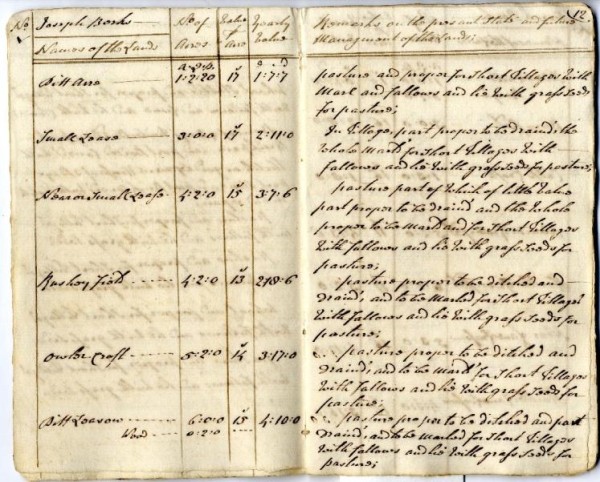 No Joseph Berks No of Value Yearly
Names of the Lands Acres Acre Value
a r p s s d
Pitt acre 1:2:20 17 1:7:7
Small Lease 3:0:0 17 2:11:0
Nearer Small Lease 4:2:0 15 3:7:6
Rushey Field 4:2:0 13 2:18:6
Owler Croft 5:2:0 14 3:17:0
Pitt Leasow 6:0:0 15 4:10:0
Wood 0:2:0
12
Remarks on the present State and future
Management of the Lands;
pasture and proper for Short Tillages with
Marl and fallows and lie with grass seeds
for pasture;
In Tillage, part proper to be draind; the
whole Marld for Short Tillages with
fallows and lie with grass seeds for pasture;
pasture part of which of little value
part proper to be draind and the whole
proper to be Marld and for Short Tillages
with fallows and lie with grass seeds for
pasture;
pasture proper to be ditched and
draind, and to be Marled for Short Tillages
with fallows and lie with grass seeds for
pasture;
pasture proper to be ditched and
draind, and to be Marld for Short Tillages
with fallows and lie with grass seeds for
pasture;
pasture proper to be ditched and part
draind, and to be Marled for Short Tillages
with fallows and lie with grass seeds for
pasture;